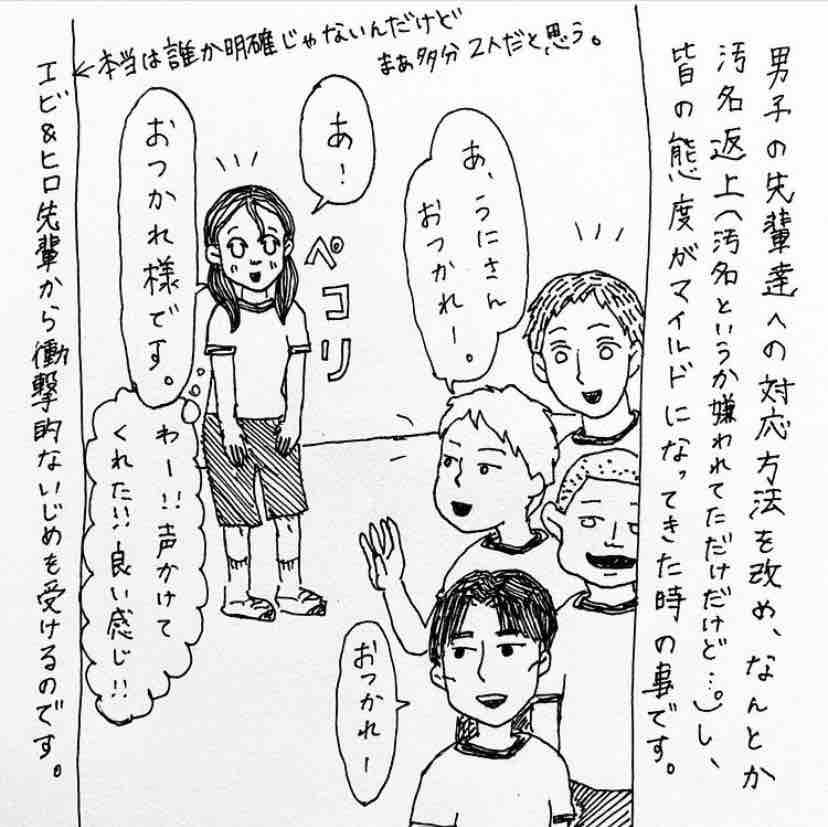 男子の先輩達への対応方法を改め、なんとか
汚名返上(汚名というか嫌われてただけだけど…。)し、
皆の態度がマイルドになってきた時の事です。
あ、うにさん
おつかれー。
あ!
ペコリ
おつかれ様です。
わー!!声かけて
くれた!!良い感じ!!
おつかれー
←本当は誰か明確じゃないんだけど
まぁ多分2人だと思う。
エビ&ヒロ先輩から衝撃的ないじめを受けるのです。